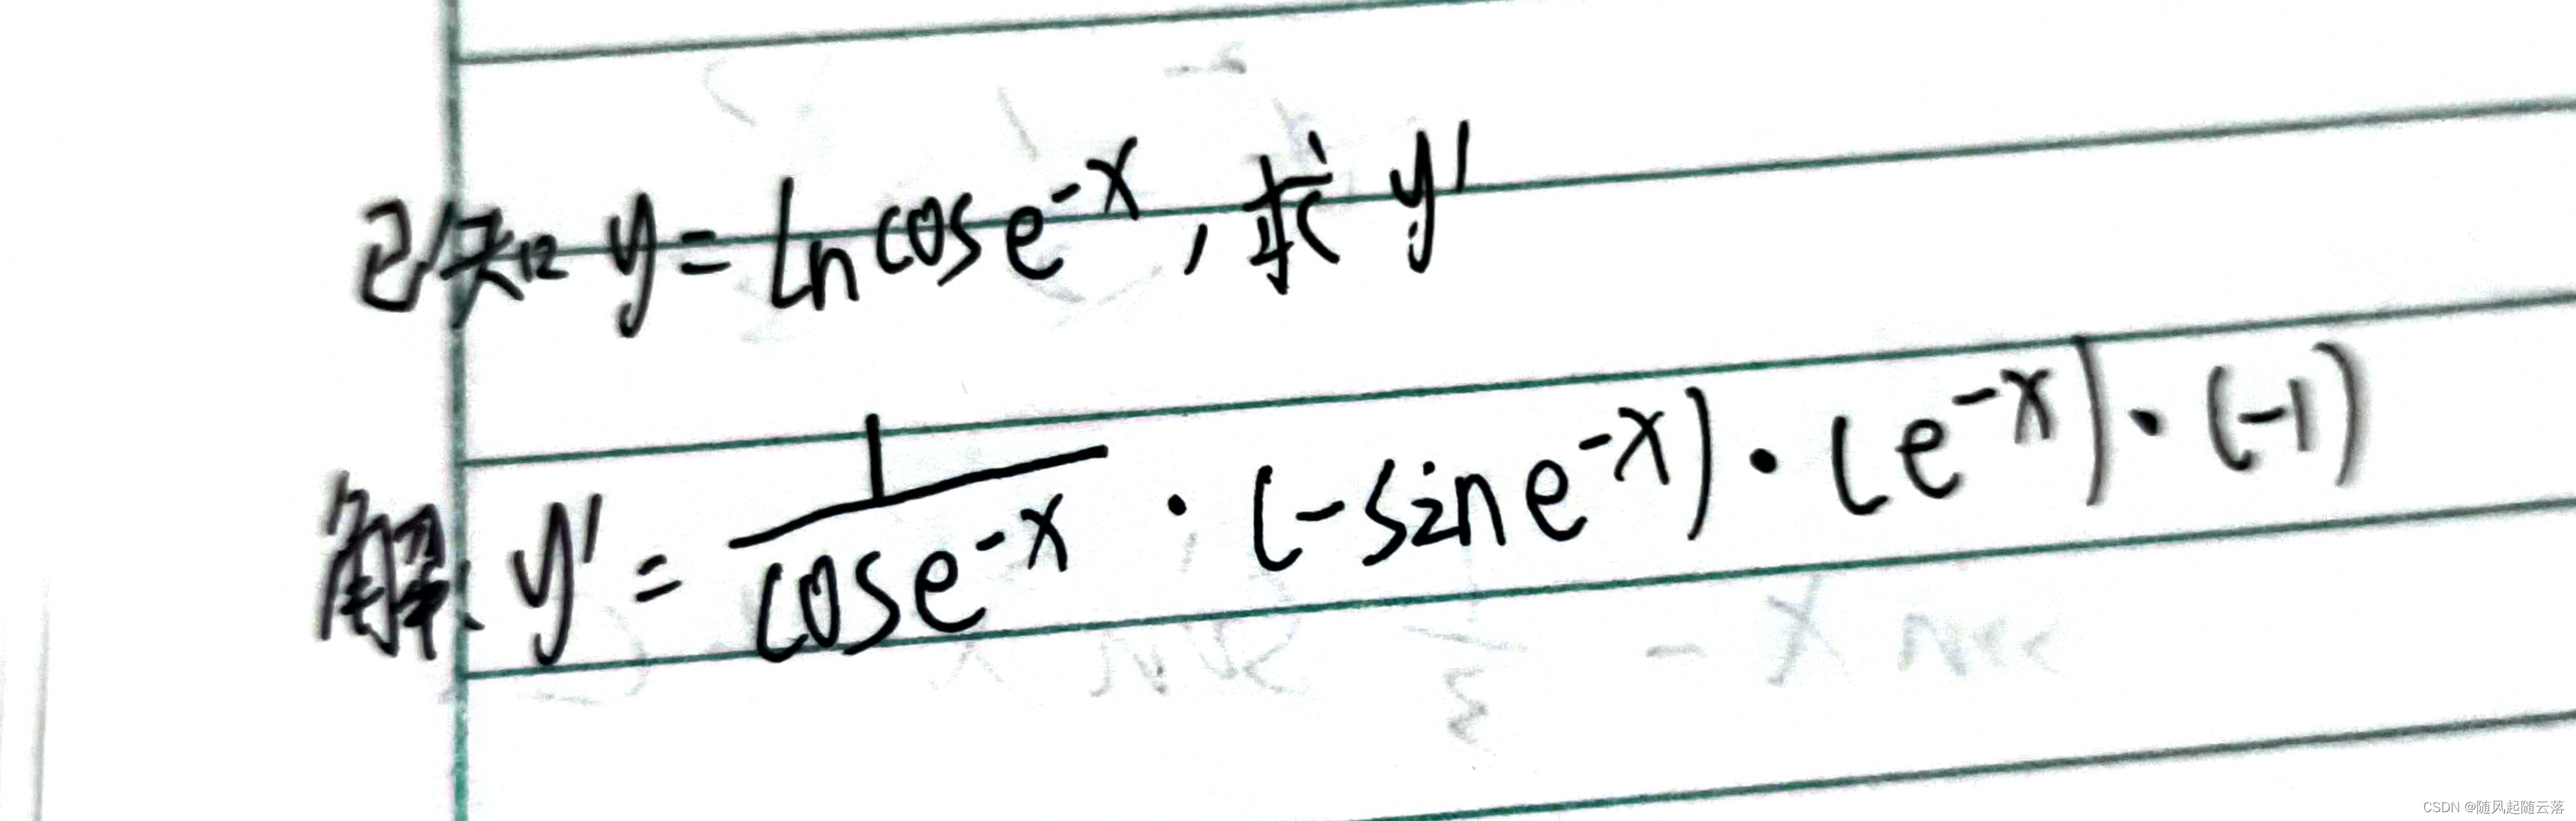 已知 y = ln cos e^{-x}, 求 y'
解: y' = \frac{1}{cos e^{-x}} · (-sin e^{-x}) · (e^{-x}) · (-1)
CSDN @随风起随云落